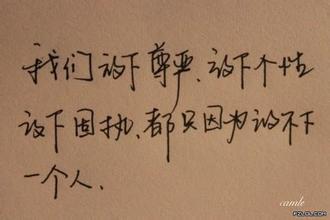 我们放下尊严、放下个性
放下固执、都只因为放不下
一个人、
camle
PZLGL.COM